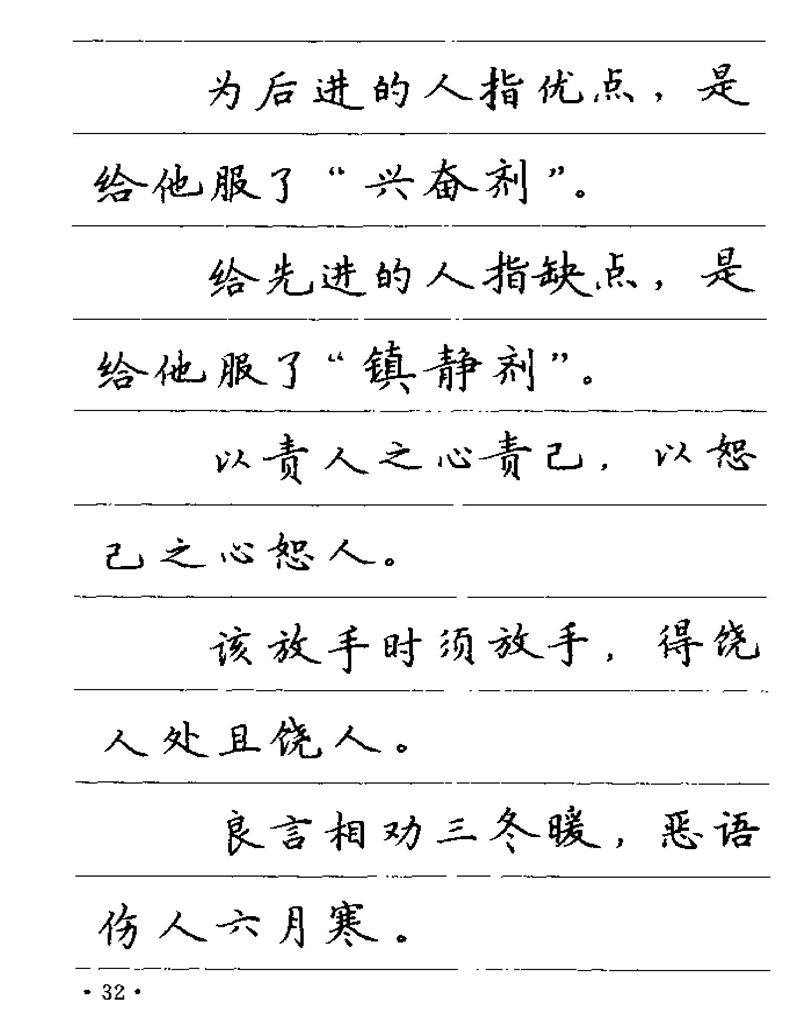 为后进的人指优点，是
给他服了“兴奋剂”。
给先进的人指缺点，是
给他服了“镇静剂”。
以责人之心责己，以恕
己之心恕人。
该放手时须放手，得饶
人处且饶人。
良言相劝三冬暖，恶语
伤人六月寒。
·32·